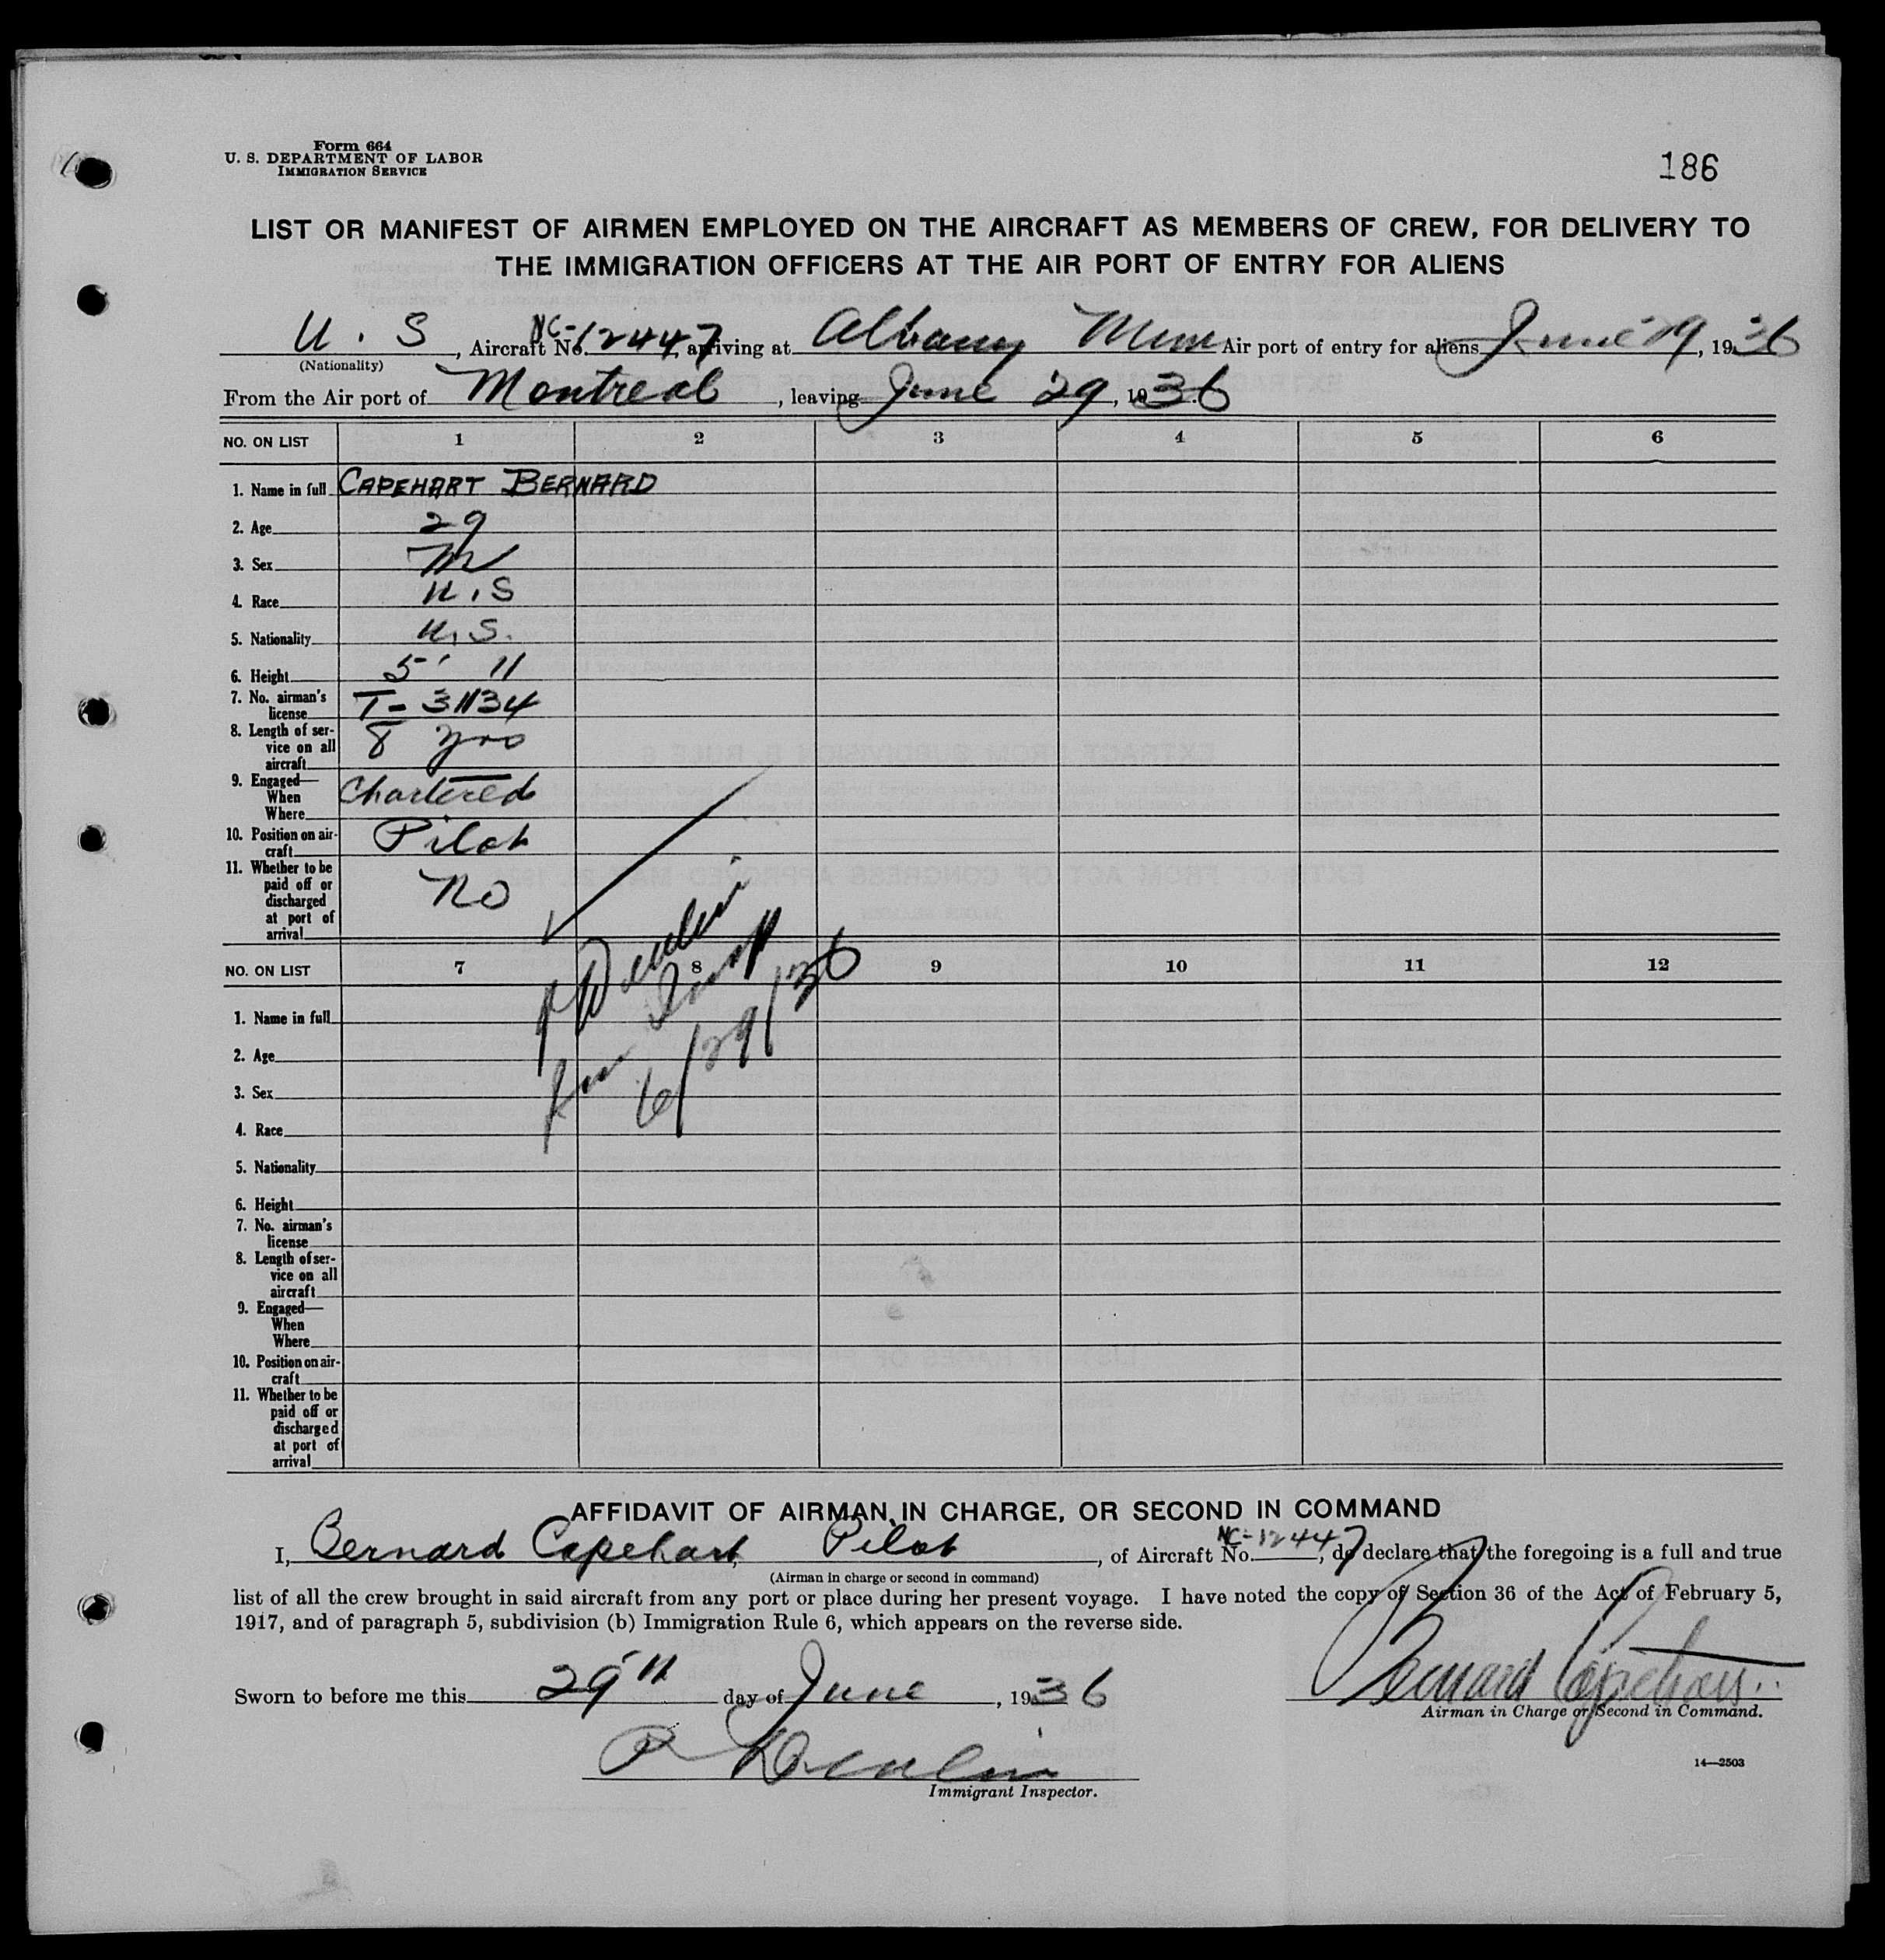 Form 664
U. S. DEPARTMENT OF LABOR
IMMIGRATION SERVICE
186
LIST OR MANIFEST OF AIRMEN EMPLOYED ON THE AIRCRAFT AS MEMBERS OF CREW, FOR DELIVERY TO
THE IMMIGRATION OFFICERS AT THE AIR PORT OF ENTRY FOR ALIENS
U. S, Aircraft No. NC-12447, arriving at Albany Air port of entry for aliens June 29, 1936
(Nationality)
From the Air port of Montreal, leaving June 29, 1936.
NO. ON LIST 1 2 3 4 5 6
1. Name in full CAPEHART BERNARD
2. Age 29
3. Sex M
4. Race U.S
5. Nationality U.S.
6. Height 5' 11
7. No. airman's
license T-31134
8. Length of ser-
vice on all
aircraft 8 yrs
9. Engaged—
When
Where Chartered
10. Position on air-
craft Pilot
11. Whether to be
paid off or
discharged
at port of
arrival No
P Denlin
Imm Insp
6/29/36
NO. ON LIST 7 8 9 10 11 12
1. Name in full
2. Age
3. Sex
4. Race
5. Nationality
6. Height
7. No. airman's
license
8. Length of ser-
vice on all
aircraft
9. Engaged—
When
Where
10. Position on air-
craft
11. Whether to be
paid off or
discharged
at port of
arrival
AFFIDAVIT OF AIRMAN IN CHARGE, OR SECOND IN COMMAND
I, Bernard Capehart, Pilot, of Aircraft No. NC-12447, do declare that the foregoing is a full and true
(Airman in charge or second in command)
list of all the crew brought in said aircraft from any port or place during her present voyage. I have noted the copy of Section 36 of the Act of February 5,
1917, and of paragraph 5, subdivision (b) Immigration Rule 6, which appears on the reverse side.
Bernard Capehart
Sworn to before me this 29th day of June, 1936
Airman in Charge or Second in Command.
P Denlin
14—2503
Immigrant Inspector.